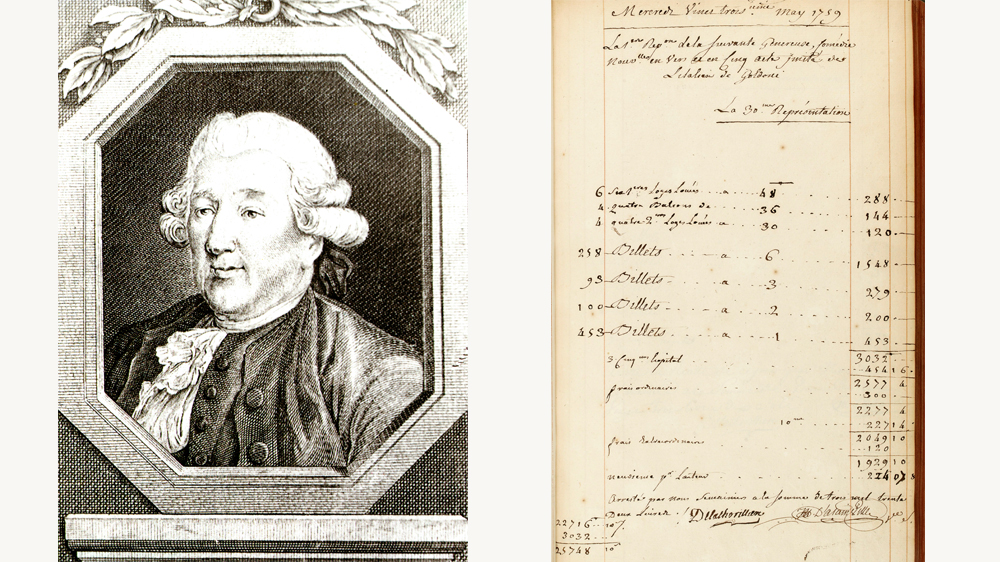 Mercredi Vingt trois ieme May 1759
La 1ere Repon de la Suivante Genereuse, Comédie
Nouvlle en Vers et en Cinq Acte Imité de
L'italien de Goldoni
La 30me Représentation
6 Six 1res Loges Louées a 48 288
4 quatre Balcons de 36 144
4 quatre 2mes Loges Louées a 30 120
258 Billets a 6 1548
93 Billets a 3 279
100 Billets a 2 200
453 Billets a 1 453
3032
3 Cinqme hopital 454 16
2577 4
frais ordinaires 300
2277 4
10me 227 14
2049 10
frais Extraordinaires 120
1929 10
neuvieme pr Lauteur 214 07 8
Arresté par nous Semainiers a la somme de trois mil trente
Deux Livres. Delathorilliere
22716 10
3032
25748 10